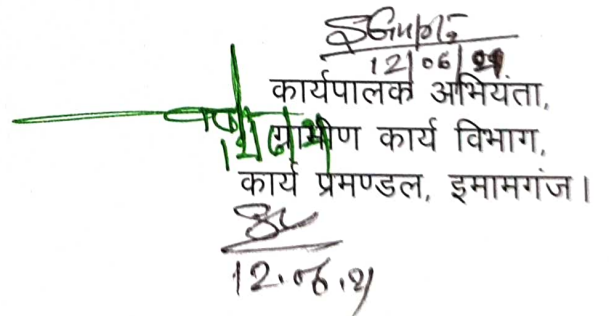 SGupta
12/06/21
कार्यपालक अभियंता,
ग्रामीण कार्य विभाग,
कार्य प्रमण्डल, इमामगंज।
12.06.21